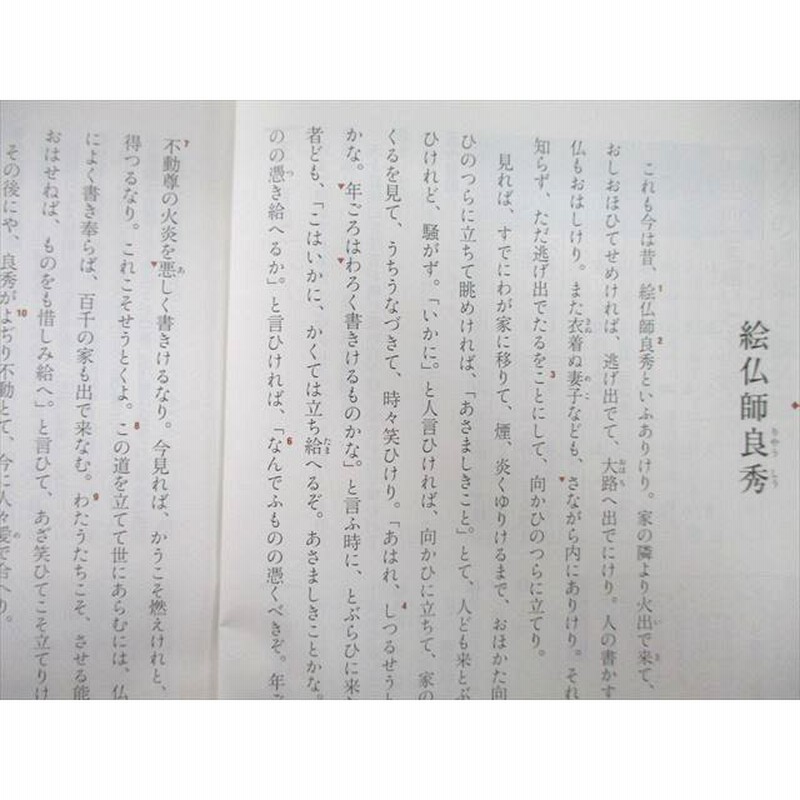 絵仏師良秀
りやうしう
これも今は昔、絵仏師良秀といふありけり。家の隣より火出で来て、
おしおほひてせめければ、逃げ出でて、大路へ出でにけり。人の書かす
仏もおはしけり。また衣着ぬ妻子なども、さながら内にありけり。それ
知らず、ただ逃げ出でたるをことにして、向かひのつらに立てり。
見れば、すでにわが家に移りて、煙、炎くゆりけるまで、おほかた向
ひのつらに立ちて眺めければ、「あさましきこと」とて、人ども来とぶ
ひけれど、騒がず。「いかに」と人言ひければ、向かひに立ちて、家の
くるを見て、うちうなづきて、時々笑ひけり。「あはれ、しつるせう
かな。年ごろはわろく書きけるものかな。」と言ふ時に、とぶらひに来
者ども、「こはいかに、かくては立ち給へるぞ。あさましきことかな。
のの憑き給へるか。」と言ひければ、「なんでふものの憑くべきぞ。年
不動尊の火炎を悪しく書きけるなり。今見れば、かうこそ燃えけれと、
得つるなり。これこそせうとくよ。この道を立てて世にあらむには、仏
によく書き奉らば、百千の家も出で来なむ。わたうたちこそ、させる能
おはせねば、ものをも惜しみ給へ」と言ひて、あざ笑ひてこそ立てりけ
その後にや、良秀がよぢり不動とて、今に人々愛で合へり。